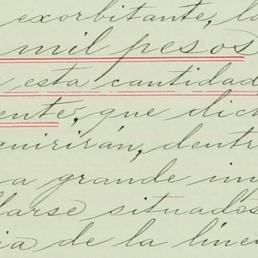 exorbitante, la
mil pesos
esta cantidad
ente, que dich
quirirán, dentr
a grande im
larse situados
ia de la línea